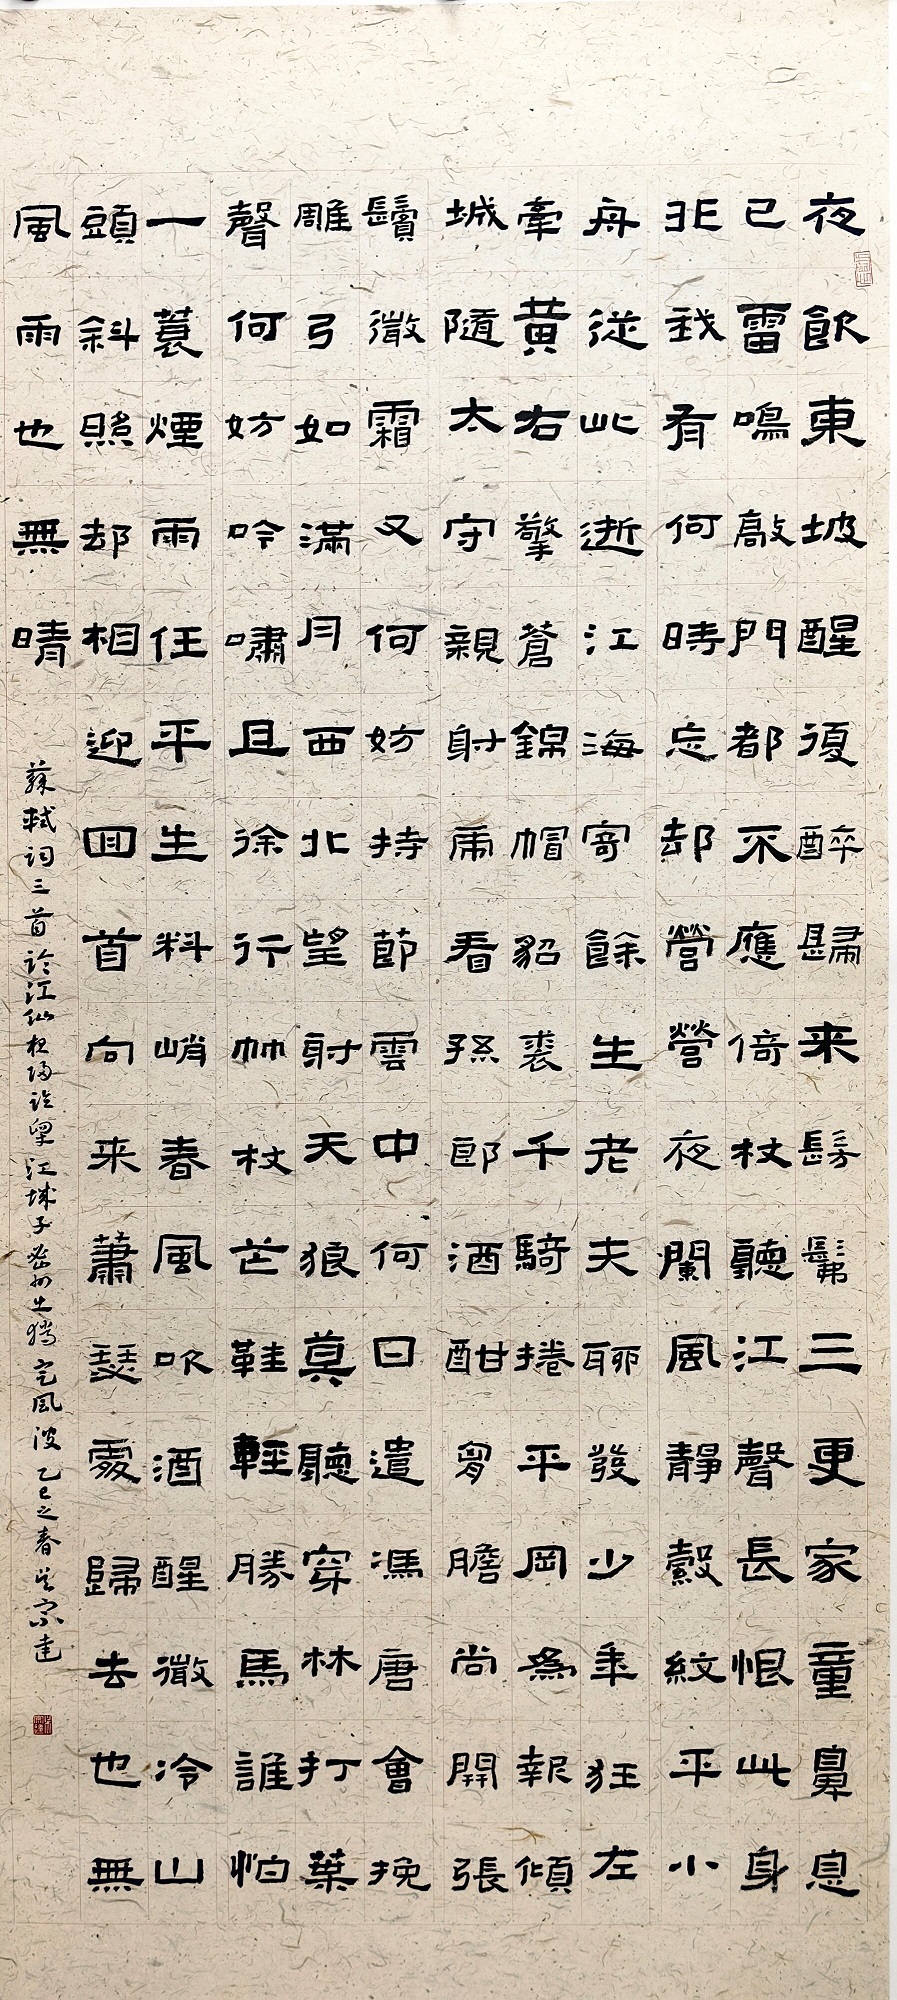 夜飲東坡醒復醉歸来髣髴三更家童鼻息
已雷鳴敲門都不應倚杖聽江聲長恨此身
非我有何時忘却營營夜闌風靜縠紋平小
舟從此逝江海寄餘生老夫聊發少年狂左
牽黃右擎蒼錦帽貂裘千騎捲平岡為報傾
城隨太守親射虎看孫郎酒酣胸膽尚開張
鬢微霜又何妨持節雲中何日遣馮唐會挽
雕弓如滿月西北望射天狼莫聽穿林打葉
聲何妨吟嘯且徐行竹杖芒鞋輕勝馬誰怕
一蓑煙雨任平生料峭春風吹酒醒微冷山
頭斜照却相迎回首向来蕭瑟處歸去也無
風雨也無晴
蘇軾詞三首臨江仙夜歸臨皋江城子密州出獵定風波乙巳之春